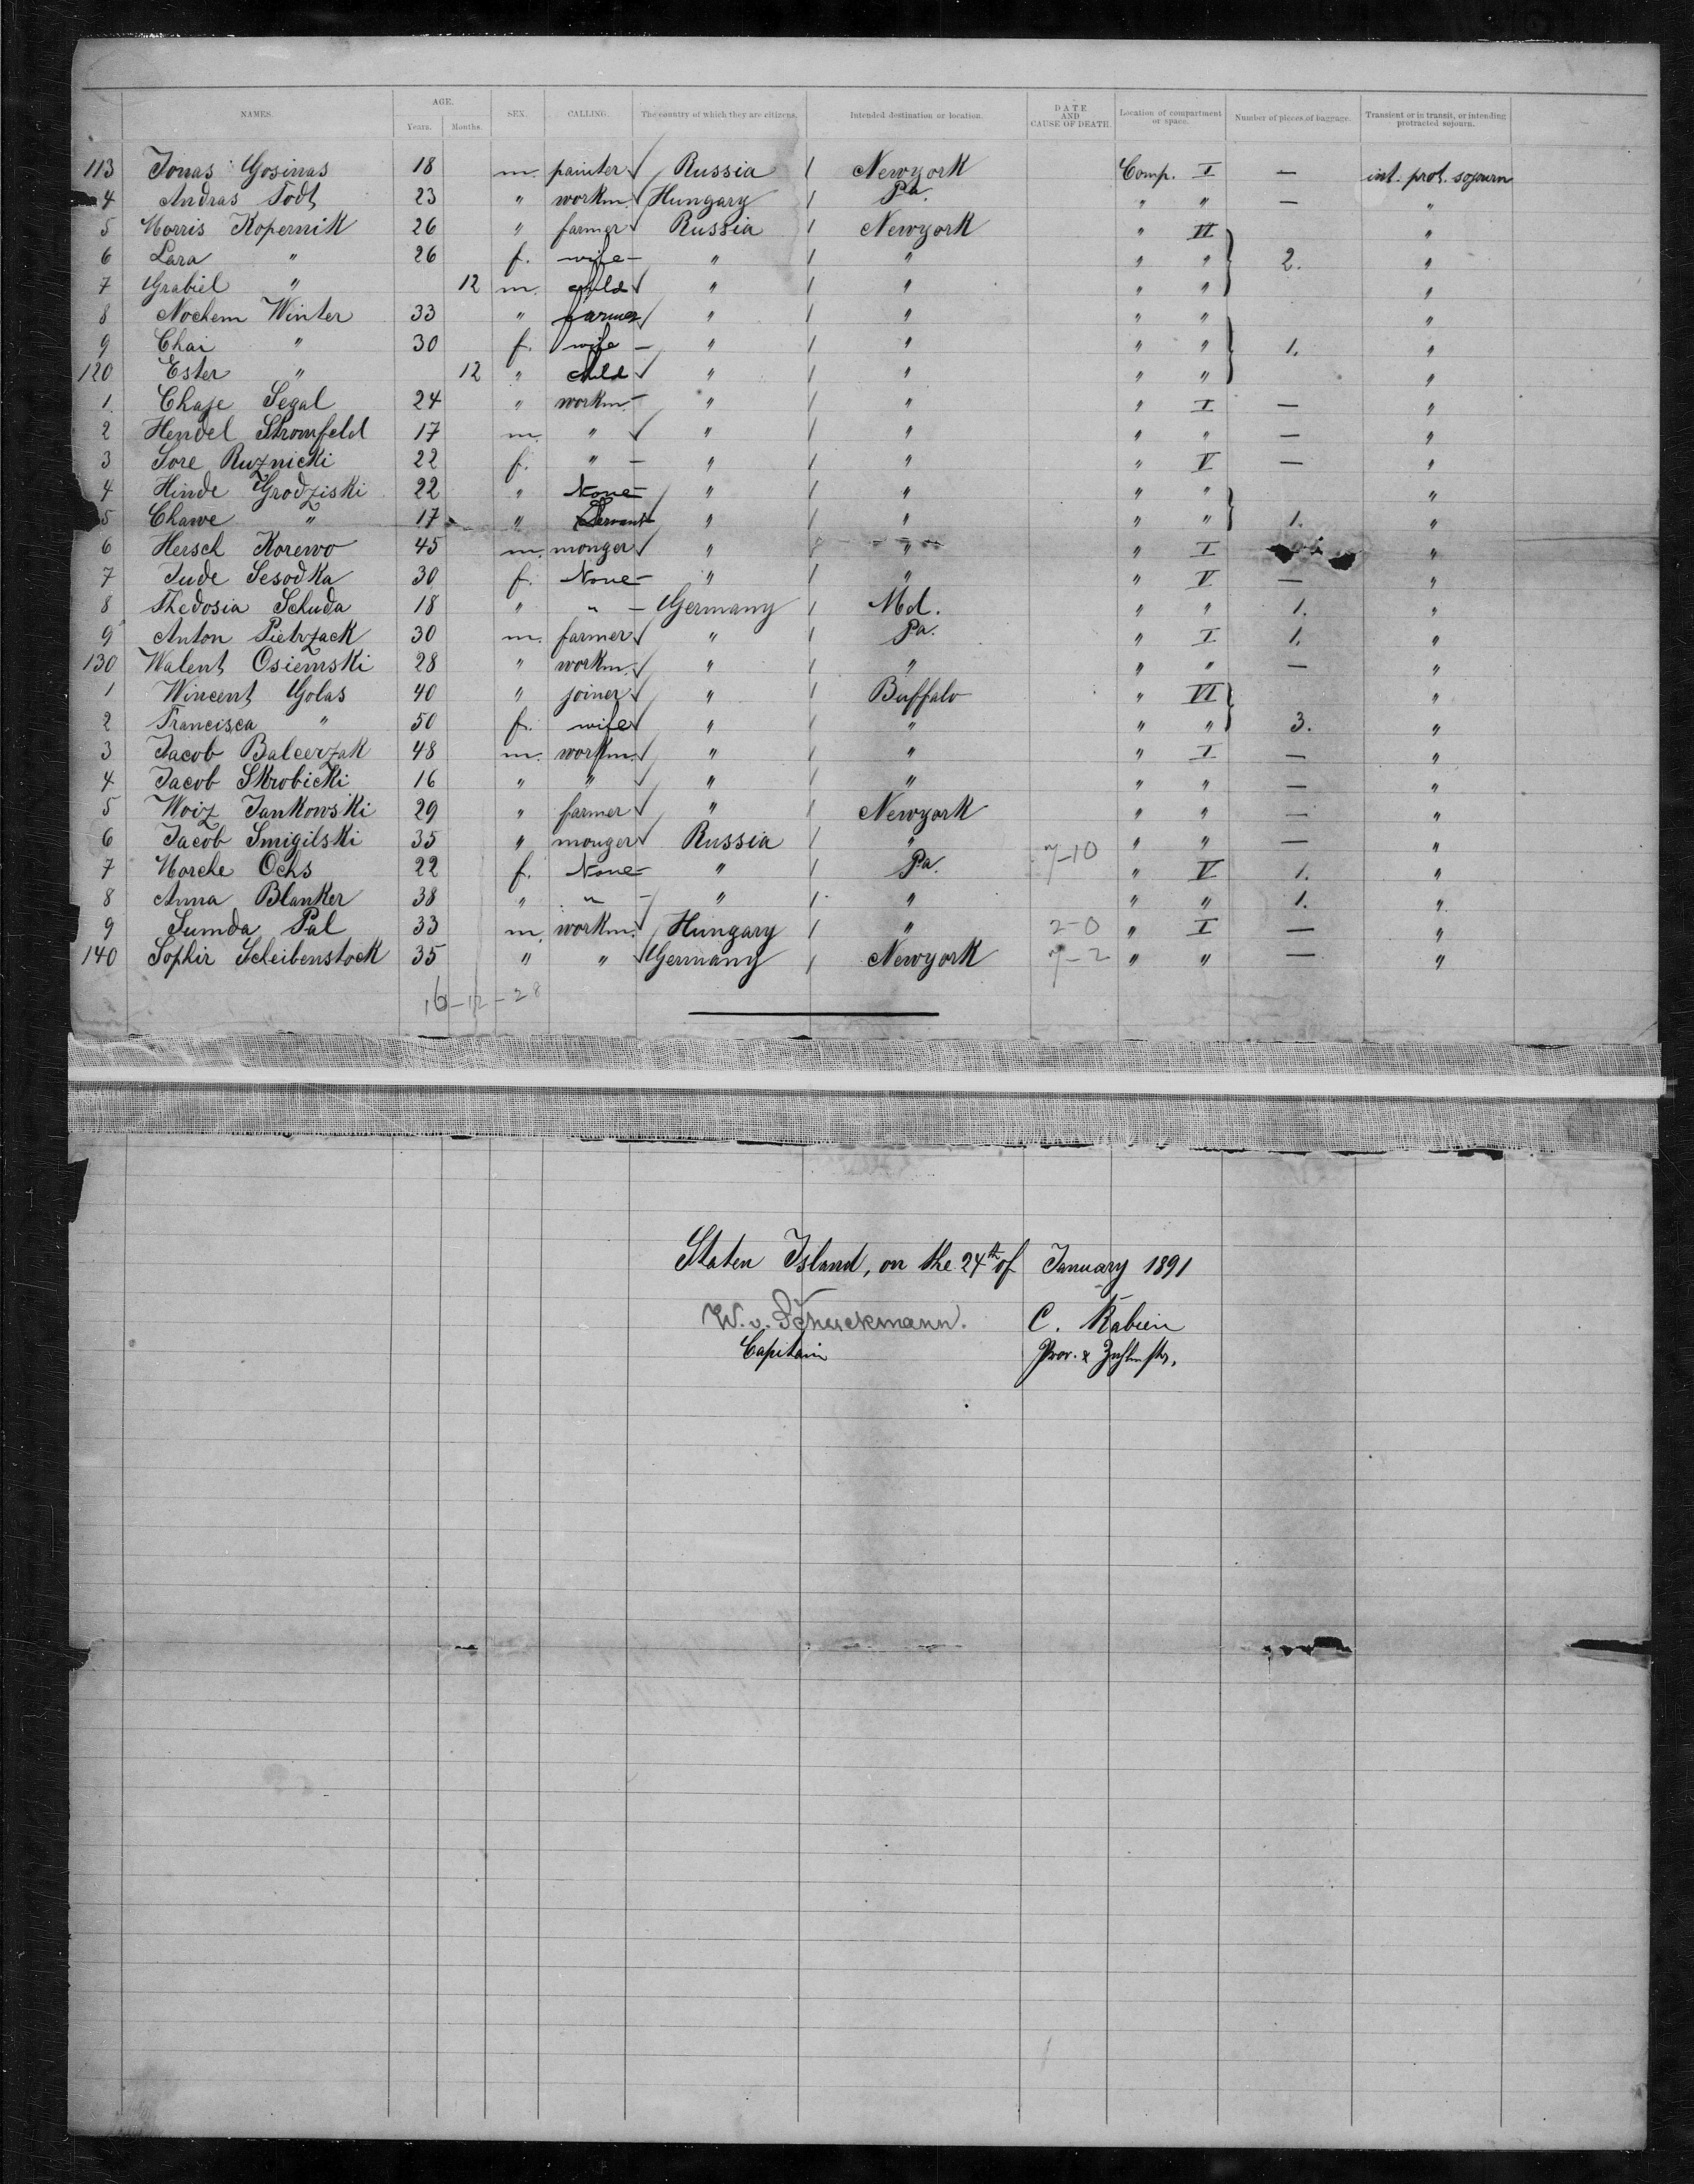 NAMES. AGE. Years. Months. SEX. CALLING. The country of which they are citizens. Intended destination or location. DATE AND CAUSE OF DEATH. Location of compartment or space. Number of pieces of baggage. Transient or in transit, or intending protracted sojourn.
113 Jonas Gosinas 18 m. painter Russia Newyork Comp. I — int. prot. sojourn
4 Andras Todt 23 " workm. Hungary Pa. " " — "
5 Morris Kopernik 26 " farmer Russia Newyork " VI "
6 Lara " 26 f. wife " " " " 2. "
7 Grabiel " 12 m. child " " " " "
8 Nochem Winter 33 " farmer " " " " "
9 Chai " 30 f. wife " " " " 1. "
120 Ester " 12 " child " " " " "
1 Chaje Segal 24 " workm. " " " I — "
2 Hendel Stromfeld 17 m. " " " " " — "
3 Sore Ruznicki 22 f. " " " " V — "
4 Hinde Grodziski 22 " None " " " " "
5 Chawe " 17 " Servant " " " " 1. "
6 Hersch Korewo 45 m. monger " " " I "
7 Jude Sesodka 30 f. None " " " V — "
8 Thedosia Schuda 18 " " Germany Md. " " 1. "
9 Anton Pietrzack 30 m. farmer " Pa. " I 1. "
130 Walent Osiemski 28 " workm. " " " " — "
1 Wincent Golas 40 " joiner " Buffalo " VI "
2 Francisca " 50 f. wife " " " " 3. "
3 Jacob Balcerzak 48 m. workm. " " " I — "
4 Jacob Skrobicki 16 " " " " " " — "
5 Woiz Jankowski 29 " farmer " Newyork " " — "
6 Jacob Smigilski 35 " monger Russia " " " — "
7 Morche Ochs 22 f. None " Pa. 7-10 " V 1. "
8 Anna Blanker 38 " " " " " " 1. "
9 Sumda Pal 33 m. workm. Hungary " 2-0 " I — "
140 Sophir Scheibenstock 35 " " Germany Newyork 7-2 " " — "
16-12-28
Staten Island, on the 24th of January 1891
W. v. Schuckmann. C. Rabien
Capitain Prov. & Zahlmstr.